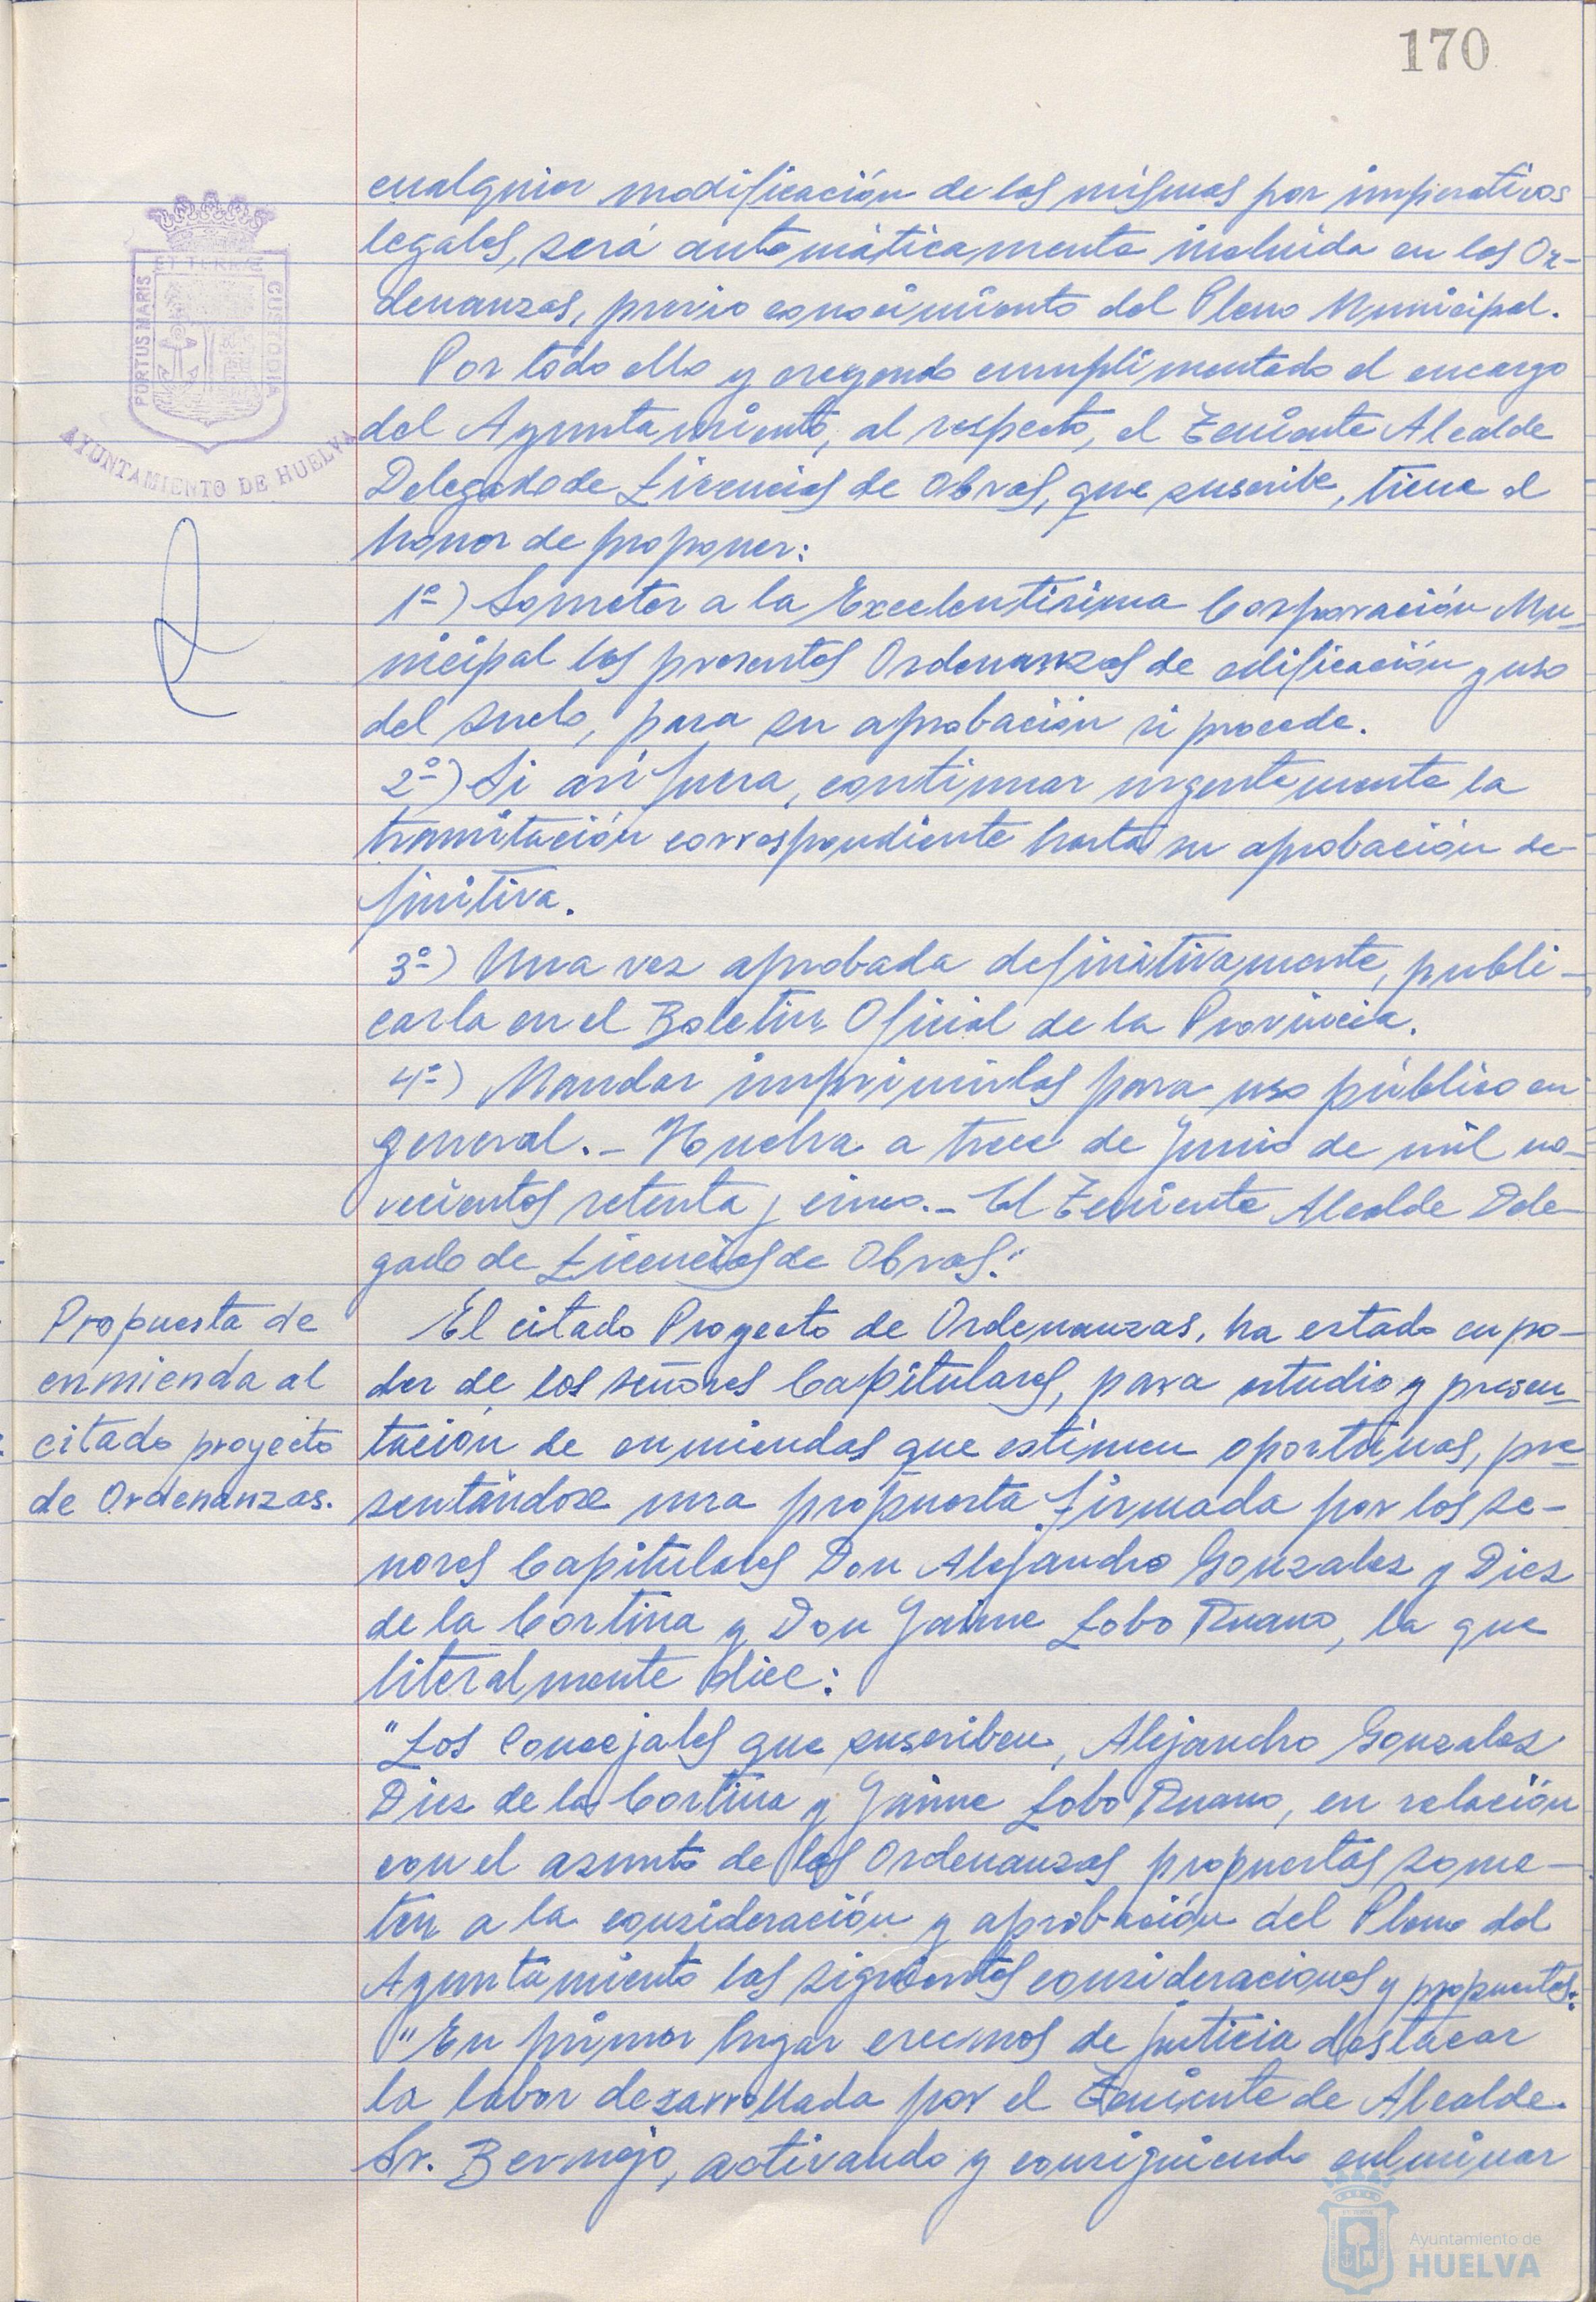 170
cualquier modificación de las mismas por imperativos
legales, será automáticamente incluida en las Or-
denanzas, previo conocimiento del Pleno Municipal.
Por todo ello y creyendo cumplimentado el encargo
del Ayuntamiento, al respecto, el Teniente Alcalde
Delegado de Licencias de Obras, que suscribe, tiene el
honor de proponer:
1º-) Someter a la Excelentísima Corporación Mu-
nicipal las presentes Ordenanzas de edificación y uso
del suelo, para su aprobación si procede.
2º-) Si así fuera, continuar urgentemente la
tramitación correspondiente hasta su aprobación de-
finitiva.
3º-) Una vez aprobada definitivamente, publi-
carla en el Boletin Oficial de la Provincia.
4º-) Mandar imprimirlas para uso público en
general.- Huelva a trece de Junio de mil no-
vecientos setenta y cinco.- El Teniente Alcalde Dele-
gado de Licencias de Obras."
Propuesta de
enmienda al
citado proyecto
de Ordenanzas.
El citado Proyecto de Ordenanzas, ha estado en po-
der de los señores Capitulares, para estudio y presen-
tación de enmiendas que estimen oportunas, pre-
sentándose una propuesta firmada por los se-
ñores Capitulares Don Alejandro Gonzalez y Diez
de la Cortina y Don Jaime Lobo Ruano, la que
literalmente dice:
"Los Concejales que suscriben, Alejandro Gonzalez
Diez de la Cortina y Jaime Lobo Ruano, en relación
con el asunto de las Ordenanzas propuestas some-
ten a la consideración y aprobación del Pleno del
Ayuntamiento las siguientes consideraciones y propuestas:
"En primer lugar creemos de justicia destacar
la labor desarrollada por el Teniente de Alcalde
Sr. Bermejo, activando y consiguiendo culminar
PORTUS MARIS
ET TERRAE
CUSTODIA
AYUNTAMIENTO DE HUELVA
Ayuntamiento de
HUELVA